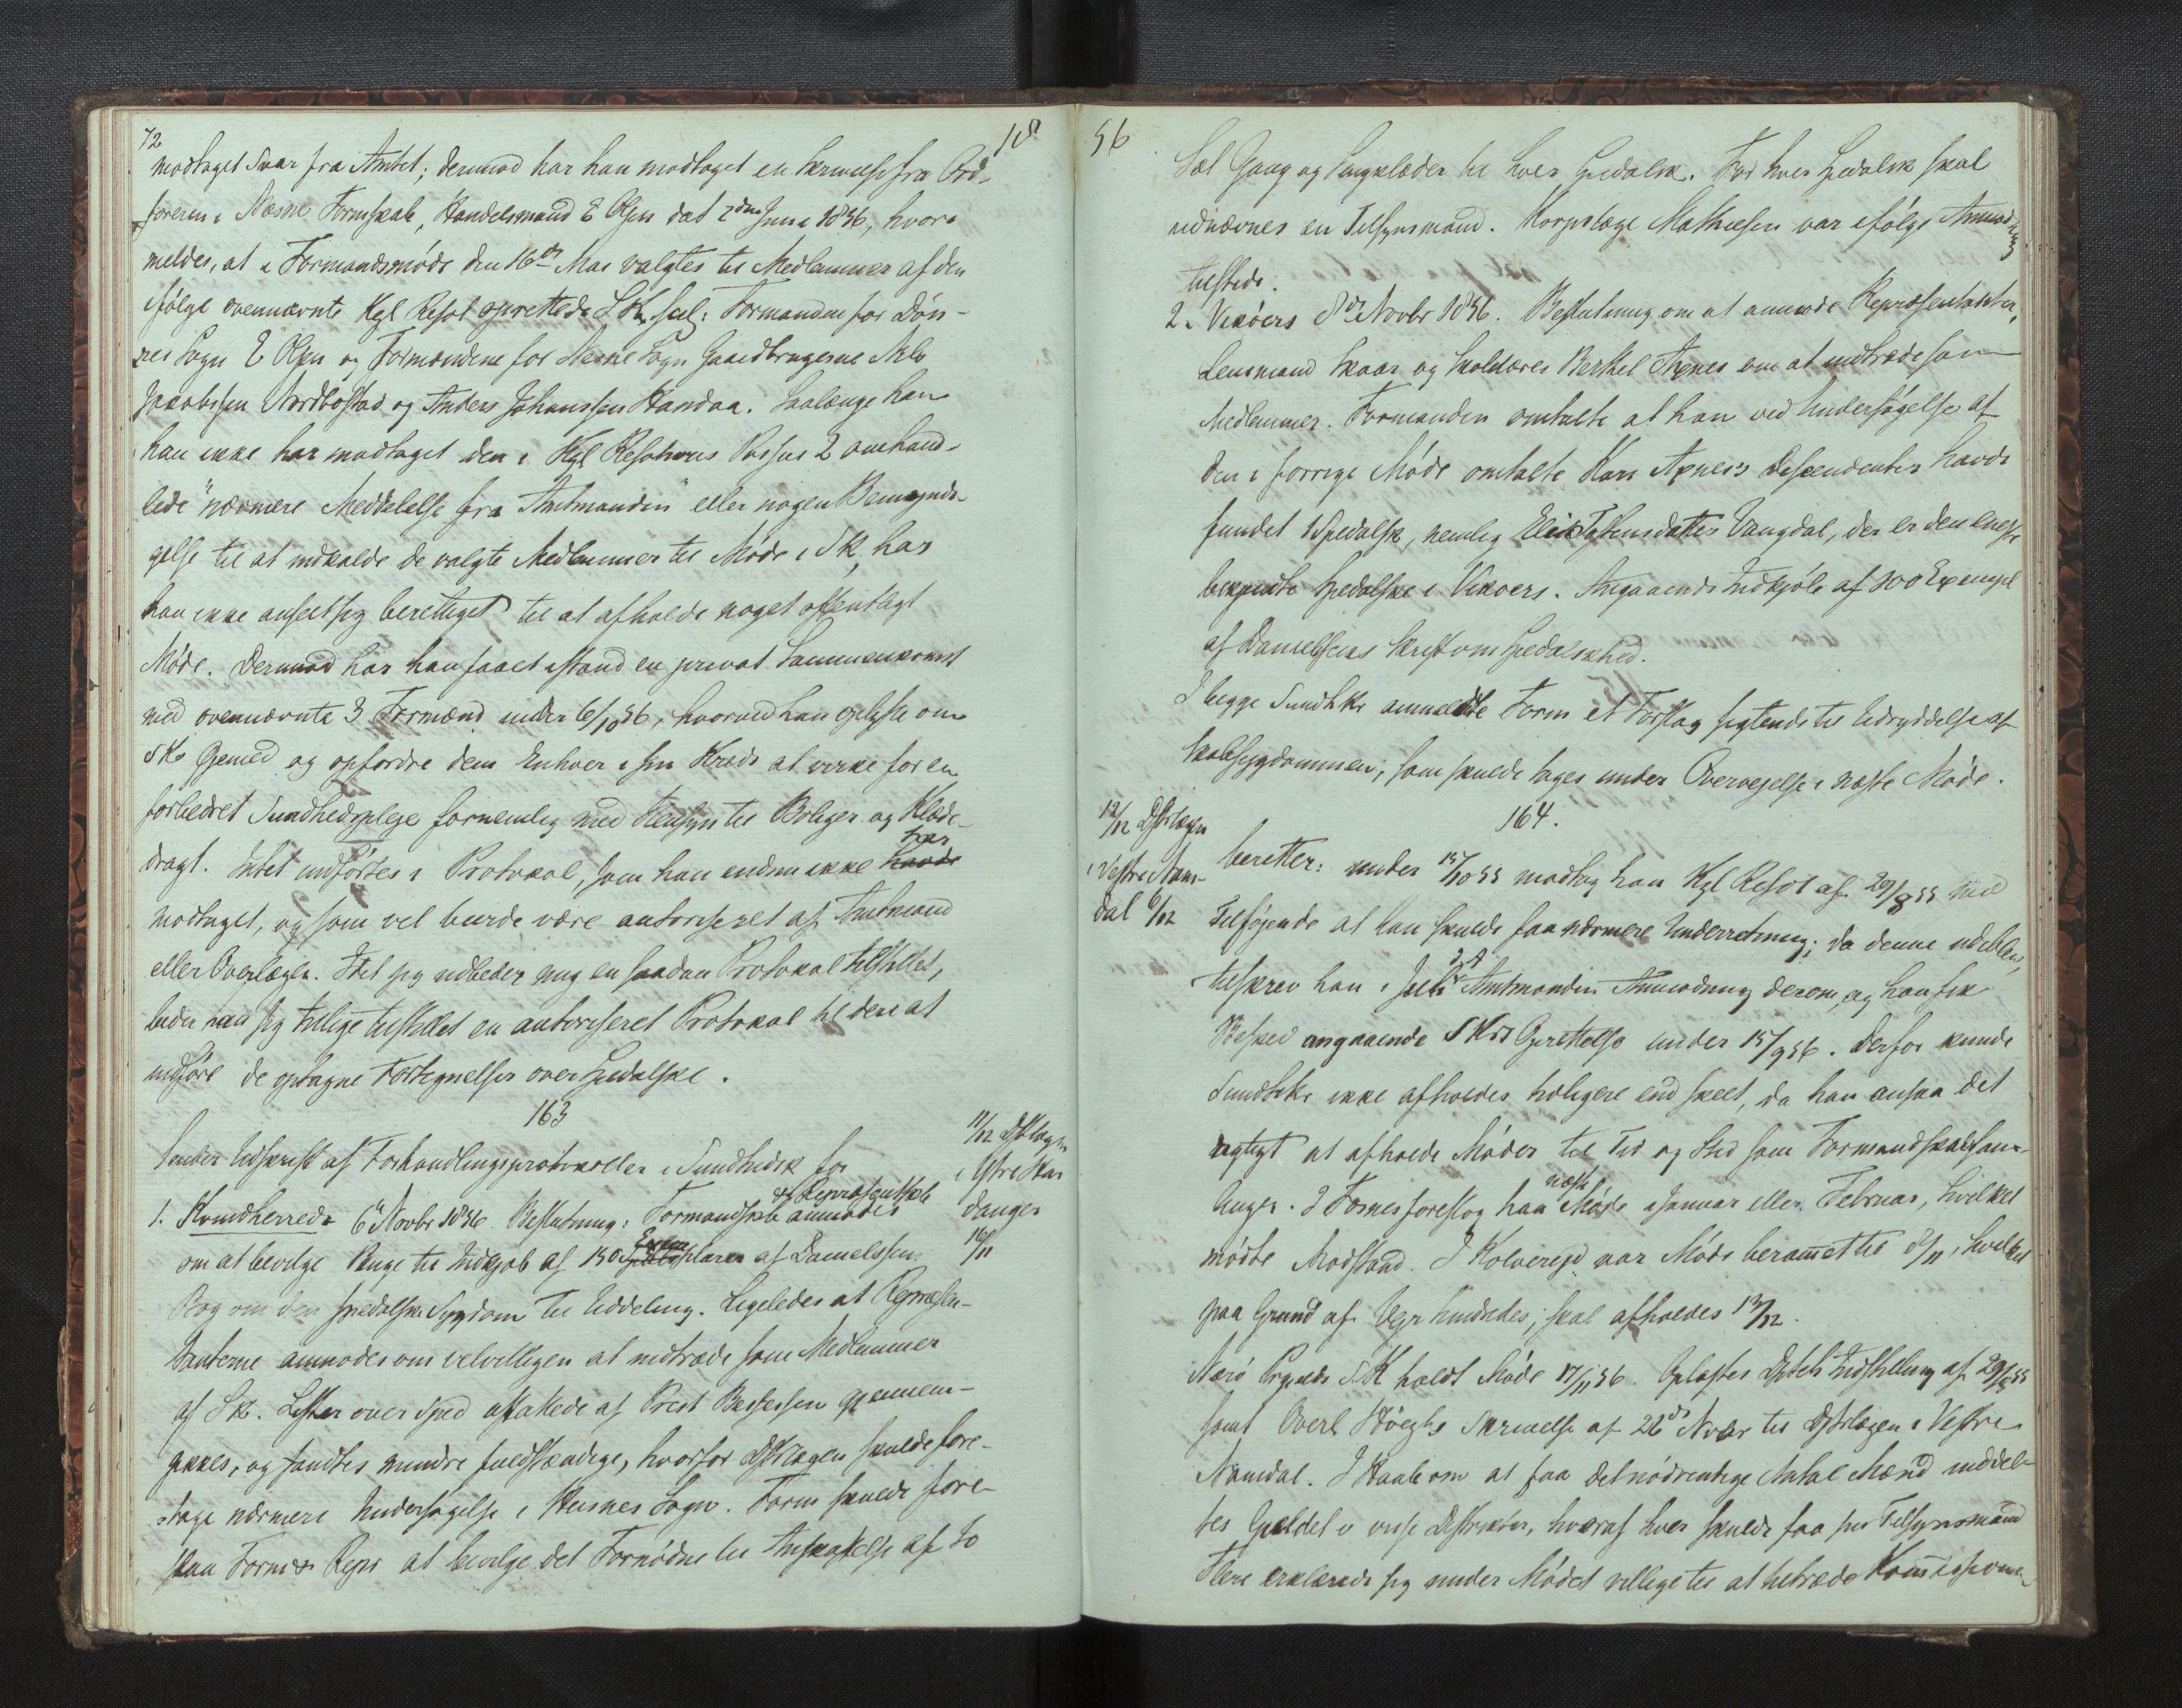 72
18
modtaget Svar fra Amtet; derimod har han modtaget en Skrivelse fra Ord-
føreren i Næsne Formskab, Handelsmand E Olsen dat 2den Juni 1856, hvori
meldes, at i Formandsmøde den 16de Mai valgtes til Medlemmer af den
ifølge ovennævnte Kgl Resol oprettede SK, sul: Formanden for Døn-
nes Sogn E Olsen og Formændene for Næsne Sogn Gaardbrugerne Nils
Jakobsen Nordbostad og Anders Johanssen Handaa. Saalænge han
han ikke har modtaget den i Kgl Resolutions Passus 2 omhand-
lede "nærmere Meddelelse fra Amtmanden" eller nogen Bemyndi-
gelse til at indkalde de valgte Medlemmer til Møde i SK, har
han ikke anseet sig berettiget til at afholde noget offentligt
Møde. Derimod har han faaet istand en privat Sammenkomst
med ovennævnte 3 Formænd under 6/10 56, hvorved han oplyste om
SKs Øiemed og opfordre dem Enhver i sin Kreds at virke for en
forbedret Sundhedspleje fornemlig med Hensyn til Boliger og Klæde-
dragt. Intet indførtes i Protokol, som han endnu ikke havde
har
modtaget, og som vel burde være autoriseret af Amtmand
eller Overlægen. Idet jeg udbeder mig en saadan Protokol tilstillet,
beder man sig tillige tilstillet en autoriseret Protokol til deri at
indføre de optagne Fortegnelser over Spedalske.
163
11/12 DstLægen
i Østre Har
danger
16/11
Sender Udskrift af Forhandlingsprotokoller i Sundhedsk for
1. Kvindherreds 6te Novbr 1856. Beslutning: Formandskab anmodes
og Repræsentskb
om at bevilge Penge til Indkjøb af 150 Exemplarer af Danielssens
Bog om den spedalske Sygdom til Uddeling. Ligeledes at Repræsen-
tanterne anmodes om velvilligen at indtræde som Medlemmer
af SK. Lister over Sped affattede af Præst Bessesen gjennem-
gikkes, og fandtes mindre fuldstændige, hvorfor DstLægen skulde fore-
tage nærmere Undersøgelse i Husnes Sogn. Form skulde fore-
slaa Form & Repr at bevilge det Fornødne til Anskaffelse af to
56
Sæt Gang og Sengklæder til hver Spedalsk. For hver Spedalsk skal
udnævnes en Tilsynsmand. Korpslæge Mathiesen var ifølge Anmodning
tilstede.
2. Vikøers 8de Novbr 1856. Beslutning om at anmode Repræsentanter,
Lensmand Skaar og Skolelærer Berthel Axnes om at indtræde som
Medlemmer. Formanden omtalte at han ved Undersøgelse af
den i forrige Møde omtalte Kari Axnes's Descendenter havde
fundet 1 Spedalsk, nemlig Elis Tostensdatter Vangdal, der er den eneste
bekjendte Spedalske i Vikøers. Angaaende Indkjøb af 100 Exempl
af Danielssens Skrift om Spedalskhed.
I begge Sundhks anmeldte Form et Forslag sigtende til Udryddelse af
Skabsygdommen, som skulde tages under Overvejelse i næste Møde.
164.
12/12 DstLægen
i Vestre Nam-
dal 6/12
beretter: under 15/10 55 modtog han Kgl Resol af 29/8 55 med
Tilføjende at han skulde faa nærmere Underretning; da denne udeblev,
tilskrev han i Juli Amtmanden Anmodning derom, og han fik
Besked angaaende SKs Oprettelse under 15/9 56. Derfor kunde
Sundhks ikke afholdes tidligere end skeet, da han ansaa det
rigtigt at afholde Møder til Tid og Sted som Formandskabsam-
linger. I Fosnes foreslog han Møde i Januar eller Februar, hvilket
næste
mødte Modstand. I Kolvereid var Møde beramet til 8/11, hvilket
paa Grund af Vejr hindredes; skal afholdes 13/12.
Nærø Prgjelds SK holdt Møde 17/11 56. Oplæstes Dptets Indstilling af 29/8 55
samt Overl Høeghs Skrivelse af 22de Novbr til Dstrlægen i Vestre
Namdal. I Haab om at faa det nødvendige Antal Mænd inddel-
tes Gjeldet i visse Distrikter, hvoraf hver skulde faa sin Tilsynsmand
Flere erklærede sig under Mødet villige til at tiltræde Komissionen